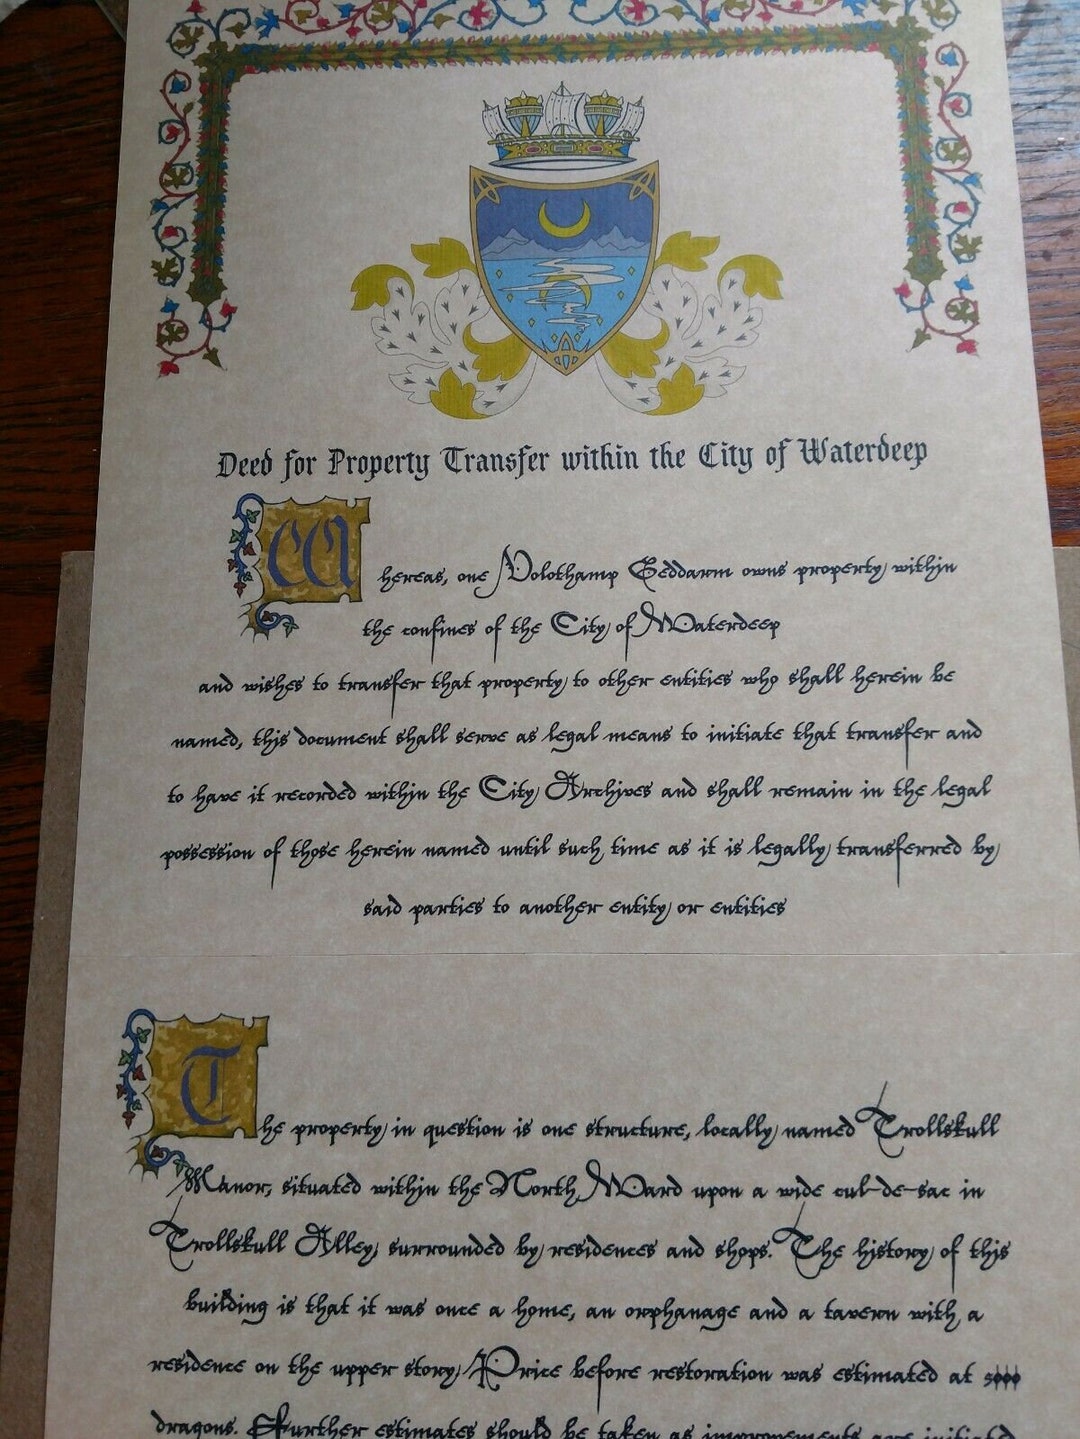 Deed for Property Transfer within the City of Waterdeep
Whereas, one Volothamp Geddarm owns property within
the confines of the City of Waterdeep
and wishes to transfer that property to other entities who shall herein be
named, this document shall serve as legal means to initiate that transfer and
to have it recorded within the City Archives and shall remain in the legal
possession of those herein named until such time as it is legally transferred by
said parties to another entity or entities
The property in question is one structure, locally named Trollskull
Manor, situated within the North Ward upon a wide cul-de-sac in
Trollskull Alley, surrounded by residences and shops. The history of this
building is that it was once a home, an orphanage and a tavern with a
residence on the upper story. Price before restoration was estimated at 5000
dragons. Further estimates should be taken as improvements are initiated